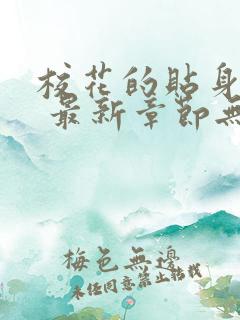 校花的貼身
最新章節無
梅色無邊
未经同意禁止转载